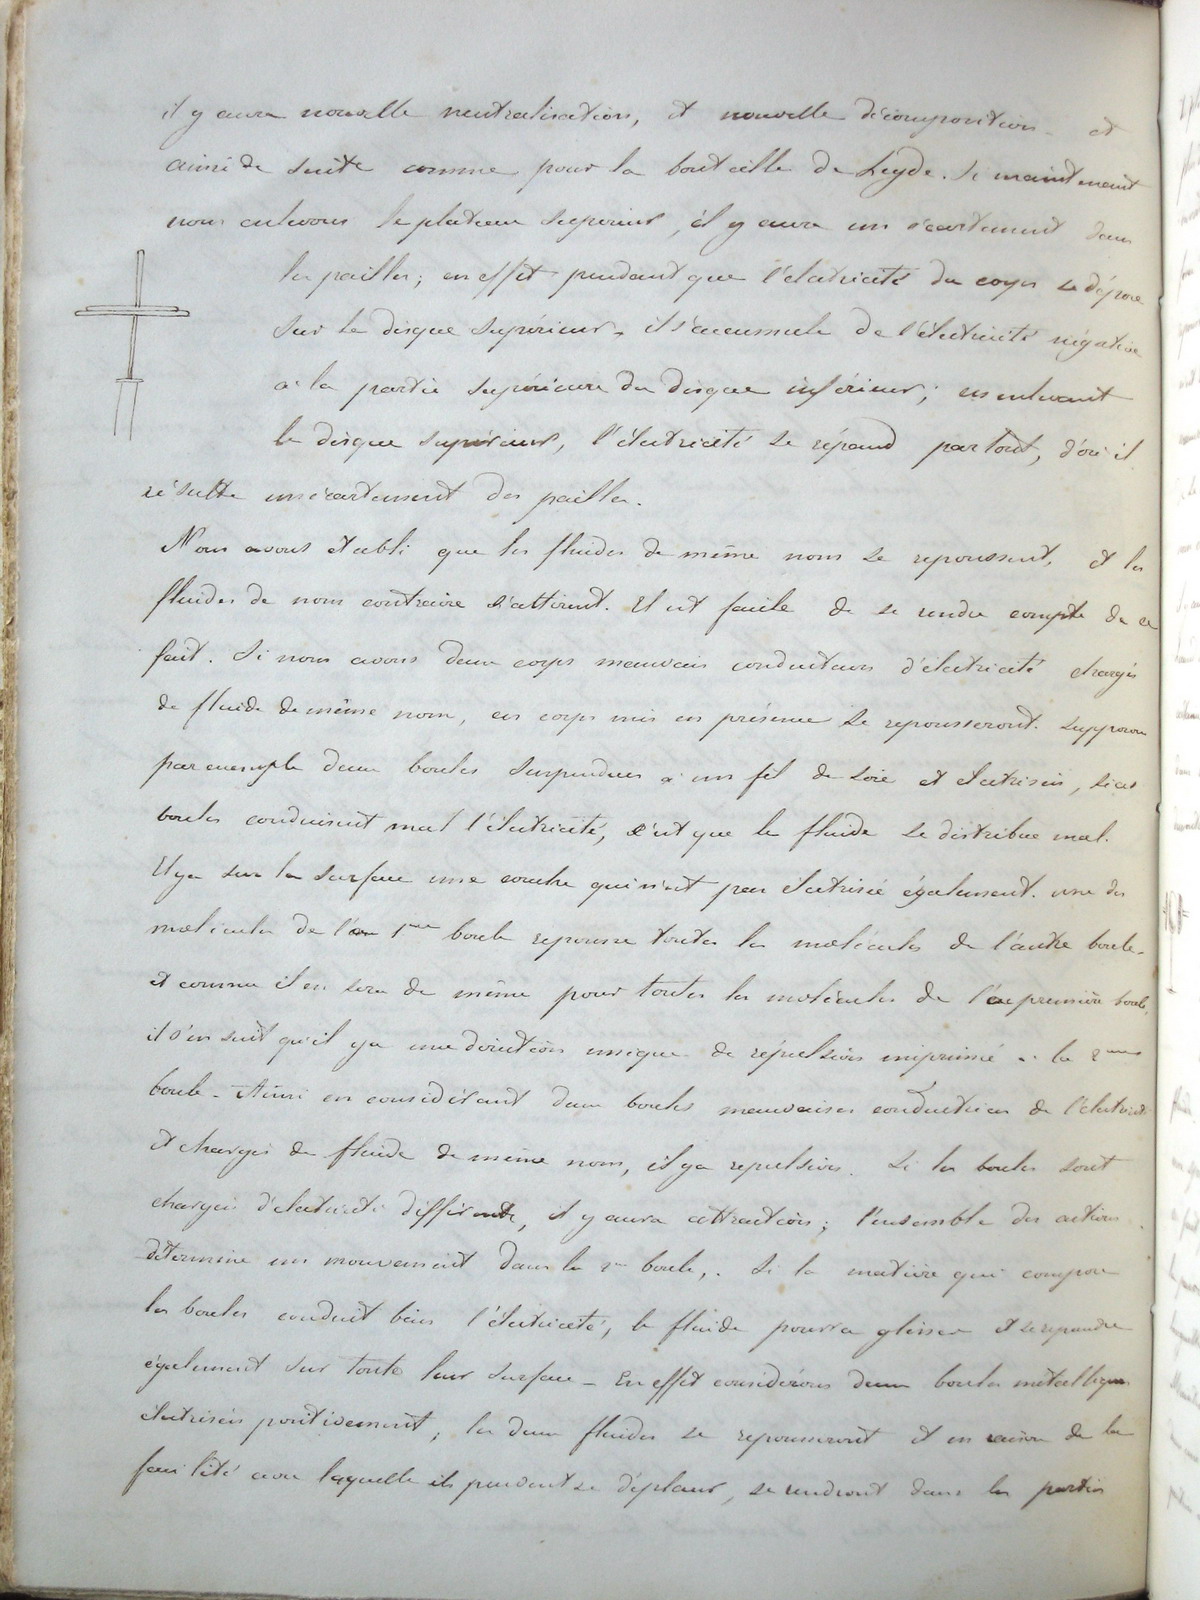 il y aura nouvelle neutralisation, et nouvelle décomposition et
ainsi de suite comme pour la bouteille de Leyde. Si maintenant
nous enlevons le plateau supérieur, il y aura un écartement dans
les pailles; en effet pendant que l'électricité du corps se dépose
sur le disque supérieur, il s'accumule de l'électricité négative
à la partie supérieure du disque inférieur; en enlevant
le disque supérieur, l'électricité se répand partout, d'où il
résulte un écartement des pailles.
Nous avons établi que les fluides de même nom se repoussent, et les
fluides de nom contraire s'attirent. Il est facile de se rendre compte de ce
fait. Si nous avons deux corps mauvais conducteurs d'électricité chargés
de fluide de même nom, ces corps mis en présence se repousseront. Supposons
par exemple deux boules suspendues à un fil de soie et électrisées, si ces
boules conduisent mal l'électricité, c'est que le fluide se distribue mal.
Il y a sur la surface une couche qui n'est pas électrisée également. une des
molécules de la 1ère boule repousse toutes les molécules de l'autre boule.
et comme il en sera de même pour toutes les molécules de la première boule,
il s'en suit qu'il y a une direction unique de répulsion imprimée à la 2ème
boule. Ainsi en considérant deux boules mauvaises conductrices de l'électricité
et chargées de fluide de même nom, il y a repulsion. Si les boules sont
chargées d'électricité différente, il y aura attraction; l'ensemble des actions
détermine un mouvement dans la 2me boule,. Si la matière qui compose
les boules conduit bien l'électricité, le fluide pourra glisser et se repandre
également sur toute leur surface - En effet considérons deux boules métalliques
électrisées positivement, les deux fluides se repousseront et en raison de la
facilité avec laquelle ils peuvent se déplacer, se rendront dans les parties